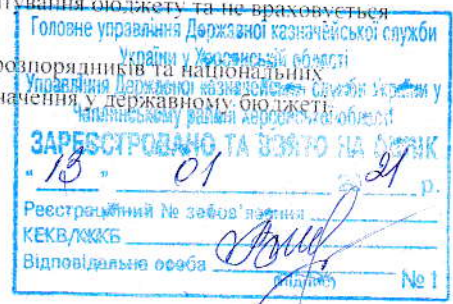 тування бюджету та не враховується
Головне управління Державної казначейської служби
України у Херсонській області
розпорядників та національних
Управління Державної казначейської служби України у
начення у державному бюджеті.
Чаплинському районі Херсонської області
ЗАРЕЄСТРОВАНО ТА ВЗЯТО НА ОБЛІК
" 13 " 01 2021 р.
Реєстраційний № зобов'язання
КЕКВ/ККК
Відповідальна особа
(підпис) № 1